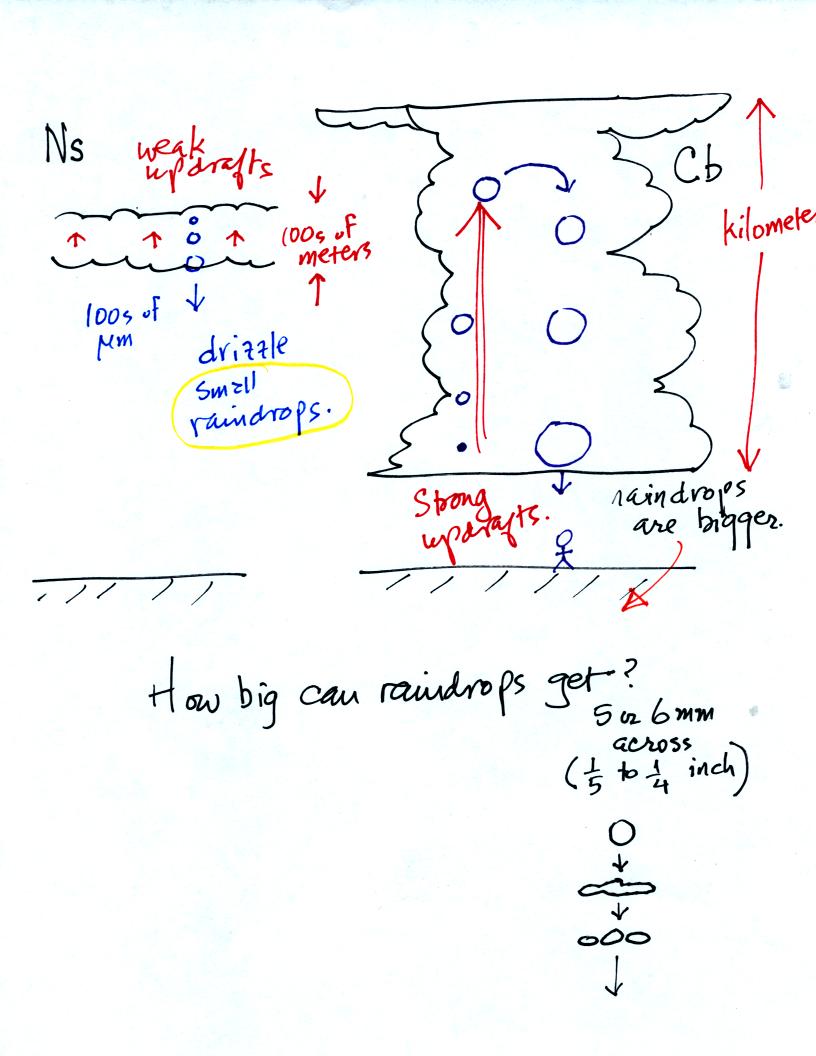 Ns
weak
updrafts
100s of
meters
100s of
μm
drizzle
small
raindrops.
Cb
kilomete
Strong
updrafts.
raindrops
are bigger.
How big can raindrops get?
5 or 6 mm
across
(1/5 to 1/4 inch)